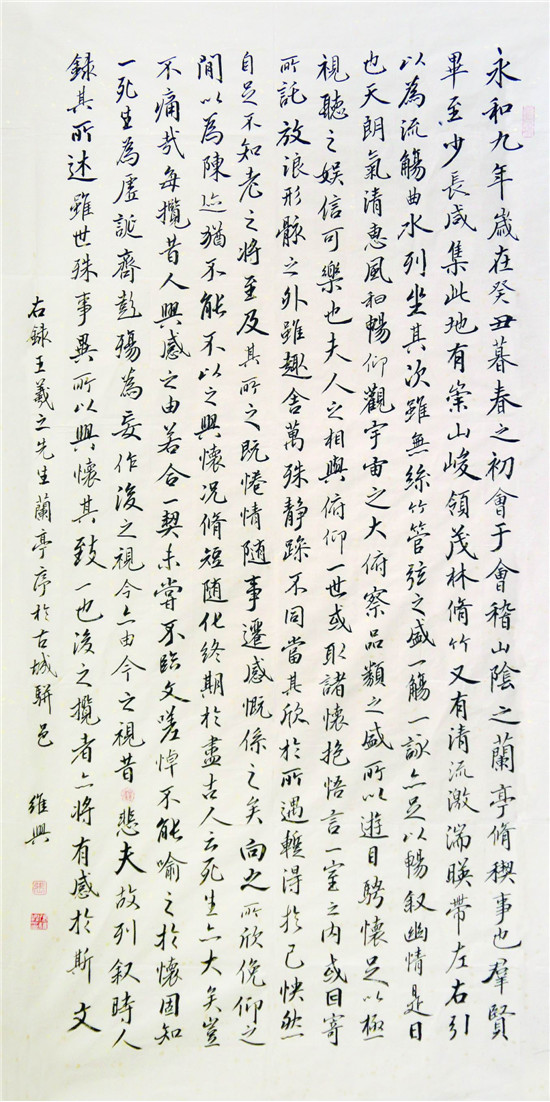 永和九年歲在癸丑暮春之初會于會稽山陰之蘭亭脩稧事也羣賢
畢至少長咸集此地有崇山峻領茂林脩竹又有清流激湍暎帶左右引
以為流觴曲水列坐其次雖無絲竹管弦之盛一觴一詠亦足以暢叙幽情是日
也天朗氣清惠風和暢仰觀宇宙之大俯察品類之盛所以遊目騁懷足以極
視聽之娛信可樂也夫人之相與俯仰一世或取諸懷抱悟言一室之內或因寄
所託放浪形骸之外雖趣舍萬殊静躁不同當其欣於所遇蹔得於己怏然
自足不知老之將至及其所之既惓情随事遷感慨係之矣向之所欣俛仰之
閒以為陳迹猶不能不以之興懷况脩短随化終期於盡古人云死生亦大矣豈
不痛哉每攬昔人興感之由若合一契未嘗不臨文嗟悼不能喻之於懷固知
一死生為虛誕齊彭殤為妄作後之視今亦由今之視昔悲夫故列叙時人
錄其所述雖世殊事異所以興懷其致一也後之攬者亦將有感於斯文
右録王羲之先生蘭亭序於古城駢邑 維興